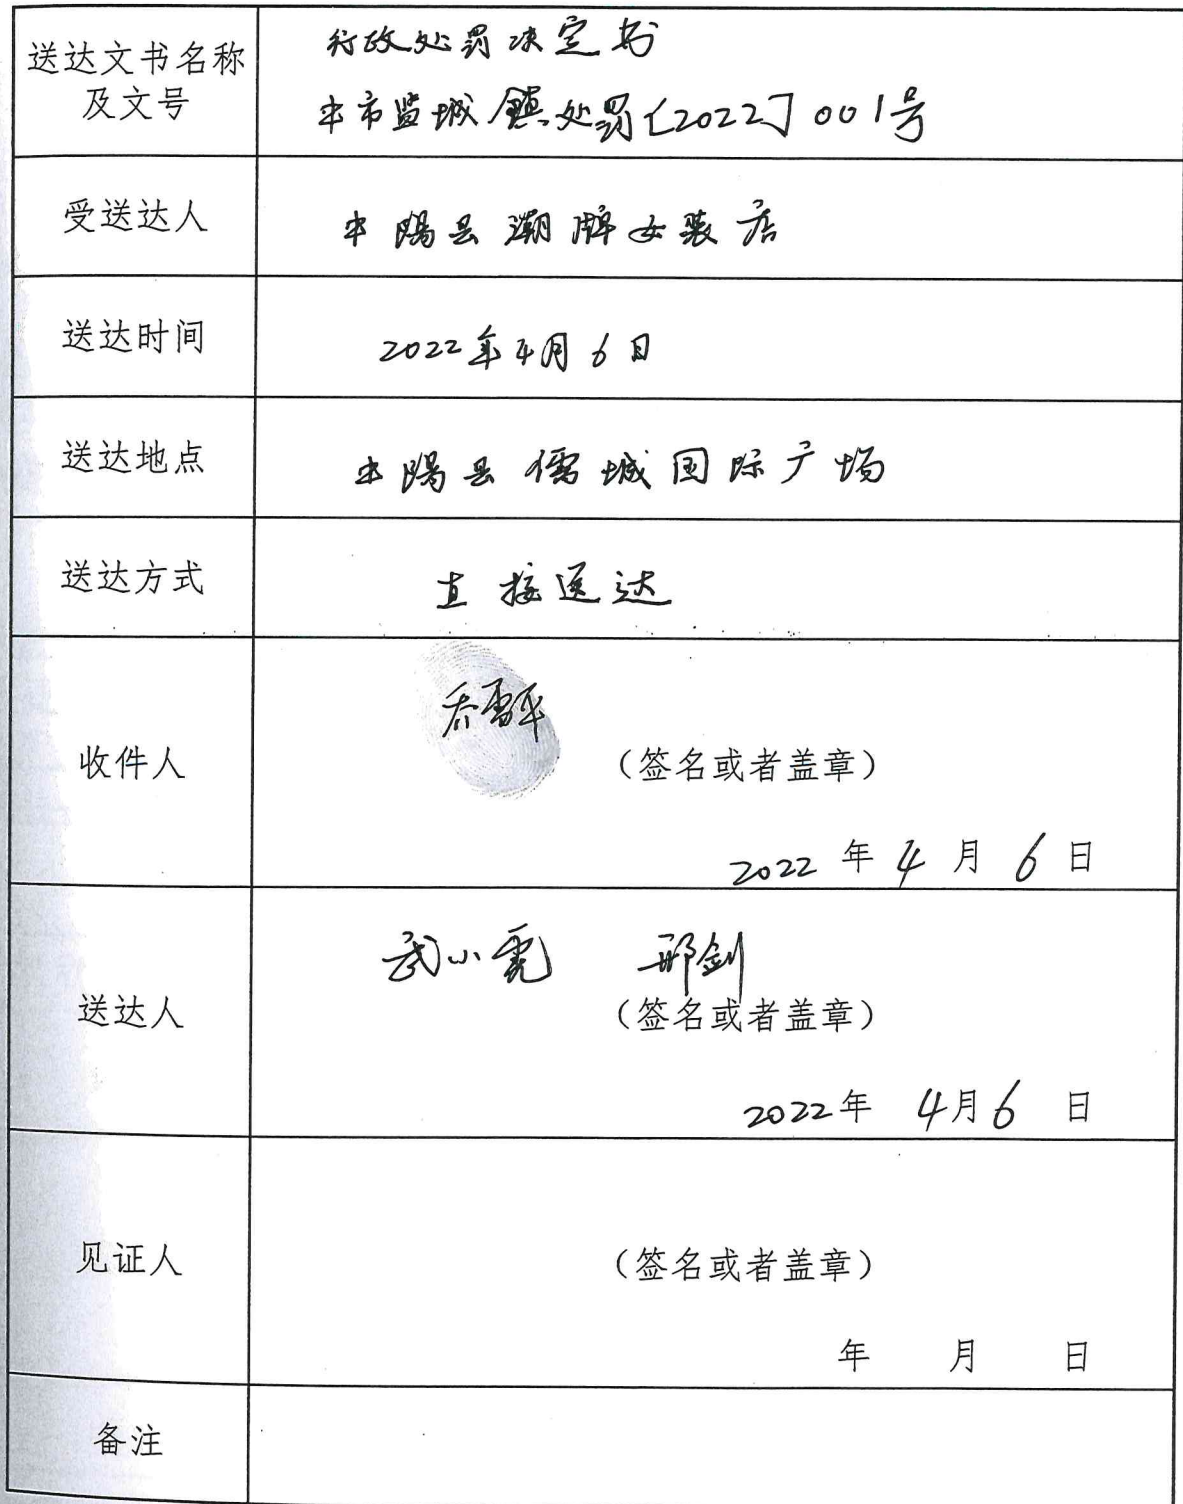 送达文书名称
及文号
行政处罚决定书
中市监城鎮处罚〔2022〕001号
受送达人
中陽县潮牌女装店
送达时间
2022年4月6日
送达地点
中陽县儒城国际广场
送达方式
直接送达
收件人
乔雪平
（签名或者盖章）
2022 年 4 月 6 日
送达人
邢剑
（签名或者盖章）
2022年 4月6 日
见证人
（签名或者盖章）
年 月 日
备注